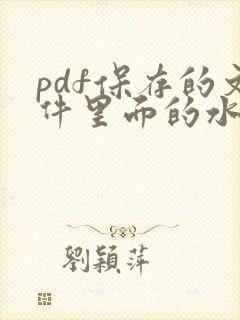 pdf保存的文
件里而的水
劉穎萍